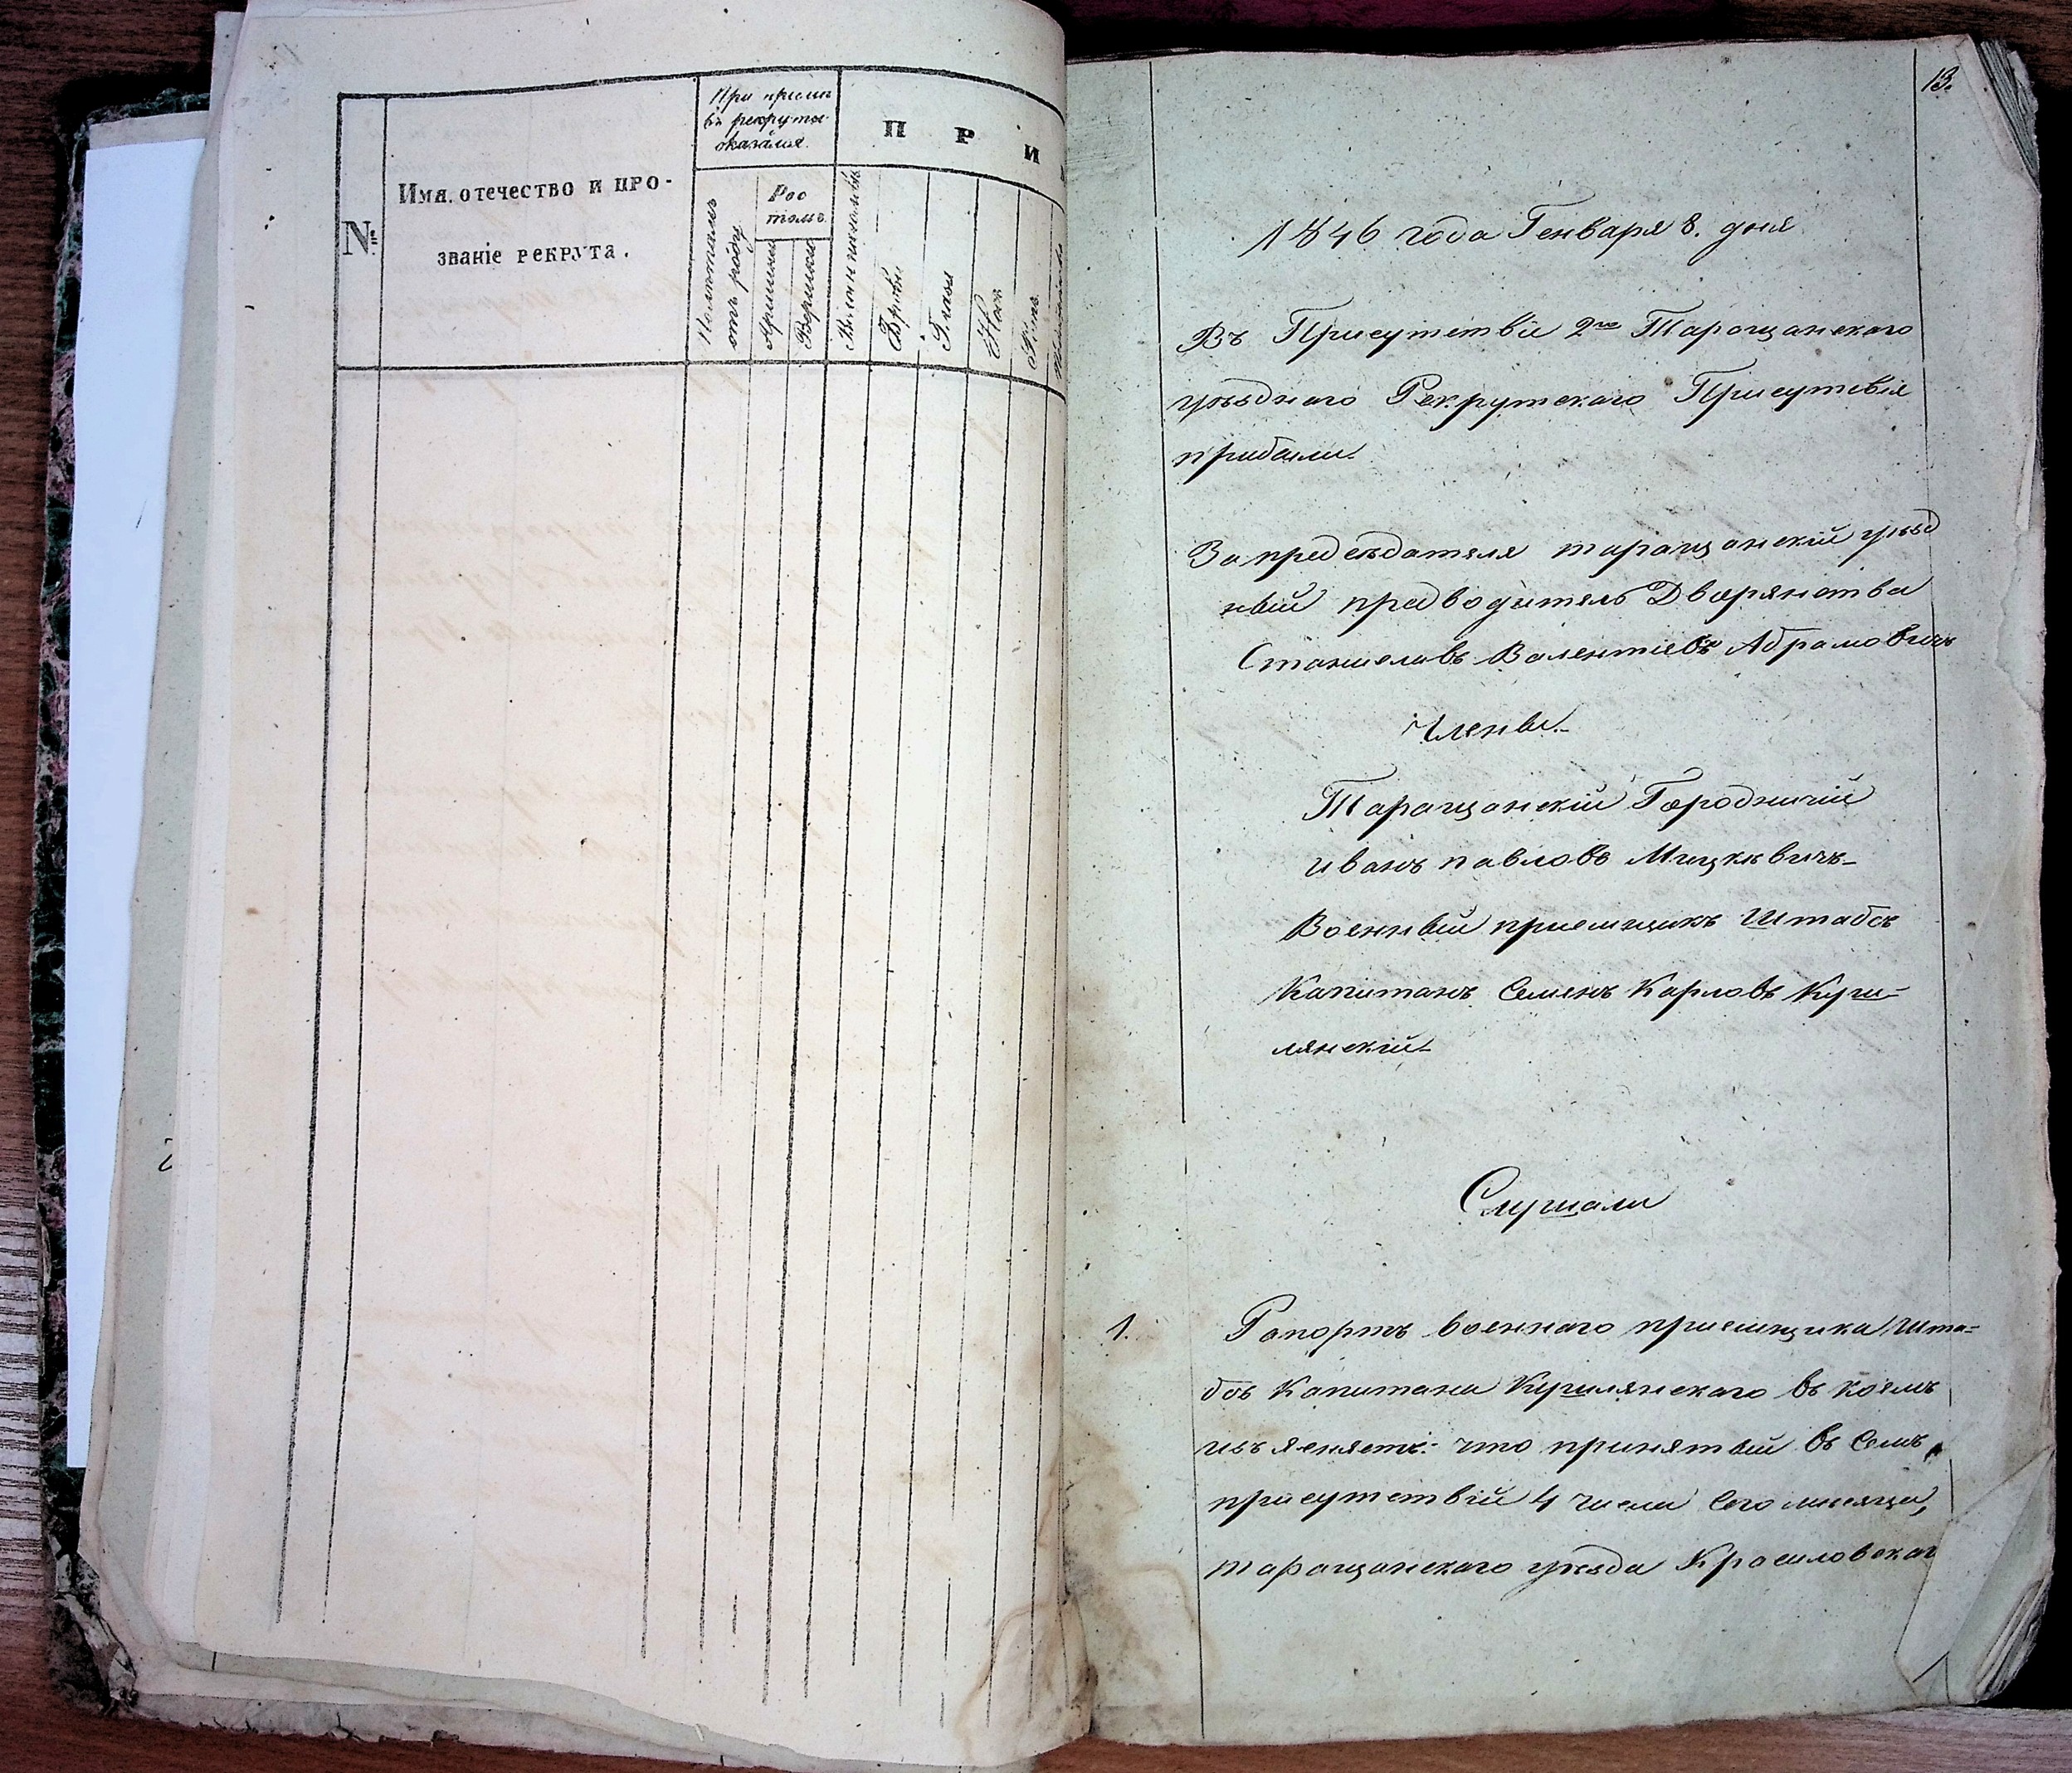 №
Имя, отечество и про-
званіе рекрута.
При пріемѣ
въ рекруты
оказался.
Рос
томъ
отъ роду
Аршины
Вершки
П Р И
Брови
Глаза
Носъ
Ротъ
13.
1846 года Генваря 8. дня
Въ Присутствіе 2го Таращанскаго
уѣзднаго Рекрутскаго Присутствія
прибыли
За предсѣдателя таращанскій уѣзд
ный предводитель Дворянства
Станиславъ Валентіевъ Абрамовичъ
Члены
Таращанскій Городничій
иванъ павловъ Мицкѣвичъ
Военный приемщикъ Штабсъ
Капитанъ Семенъ Карловъ Куши-
лянскій
Слушали
1.
Рапортъ военнаго приемщика Шта=
бсъ Капитана Кушилянскаго въ коемъ
изъясняетъ: что принятый въ семъ
присутствіи 4 числа сего мѣсяца,
таращанскаго уѣзда Красиловскаг